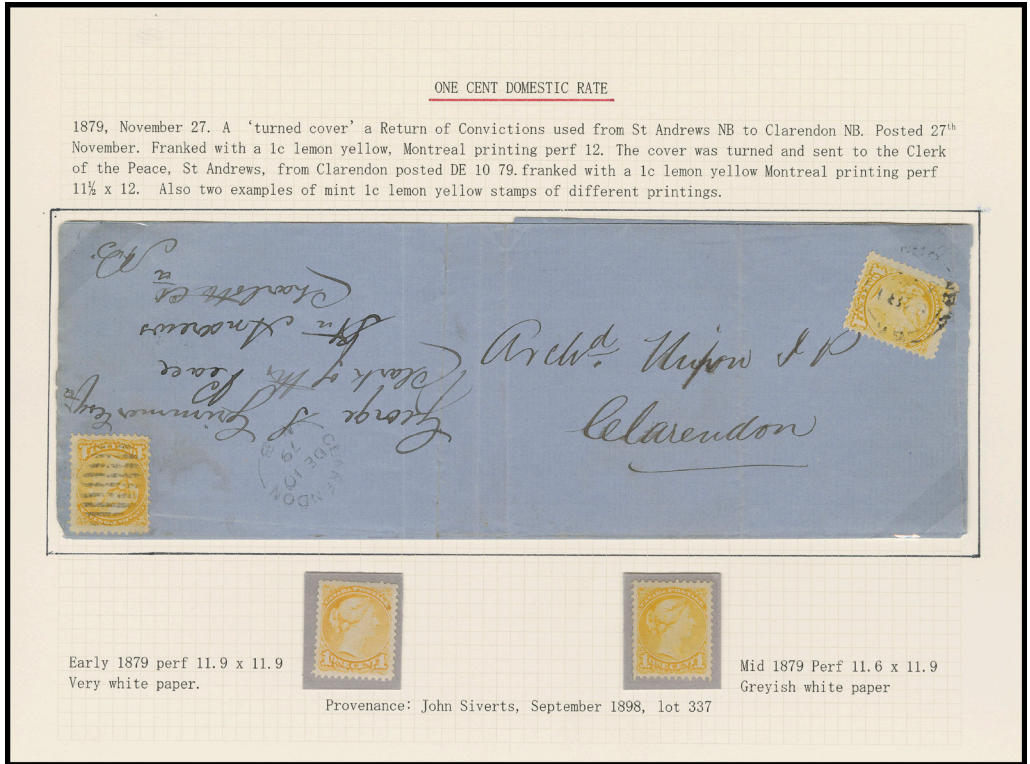 ONE CENT DOMESTIC RATE
1879, November 27. A ‘turned cover’ a Return of Convictions used from St Andrews NB to Clarendon NB. Posted 27th
November. Franked with a 1c lemon yellow, Montreal printing perf 12. The cover was turned and sent to the Clerk
of the Peace, St Andrews, from Clarendon posted DE 10 79. franked with a 1c lemon yellow Montreal printing perf
11½ x 12. Also two examples of mint 1c lemon yellow stamps of different printings.
Archd
Clarendon
George S Grimmer Esqr
Clark of the Peace
St Andrews
Charlotte Co
NB
CLARENDON
DE 10
79
Early 1879 perf 11.9 x 11.9
Very white paper.
Mid 1879 Perf 11.6 x 11.9
Greyish white paper
Provenance: John Siverts, September 1898, lot 337